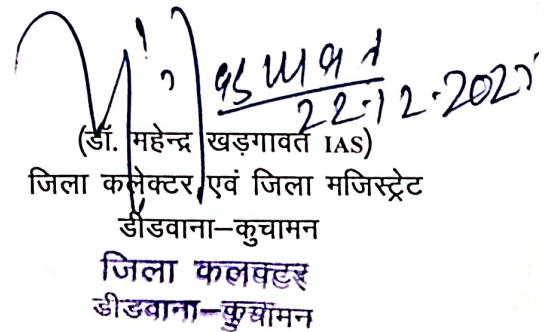 22.12.2025
(डॉ. महेन्द्र खड़गावत IAS)
जिला कलेक्टर एवं जिला मजिस्ट्रेट
डीडवाना–कुचामन
जिला कलक्टर
डीडवाना–कुचामन